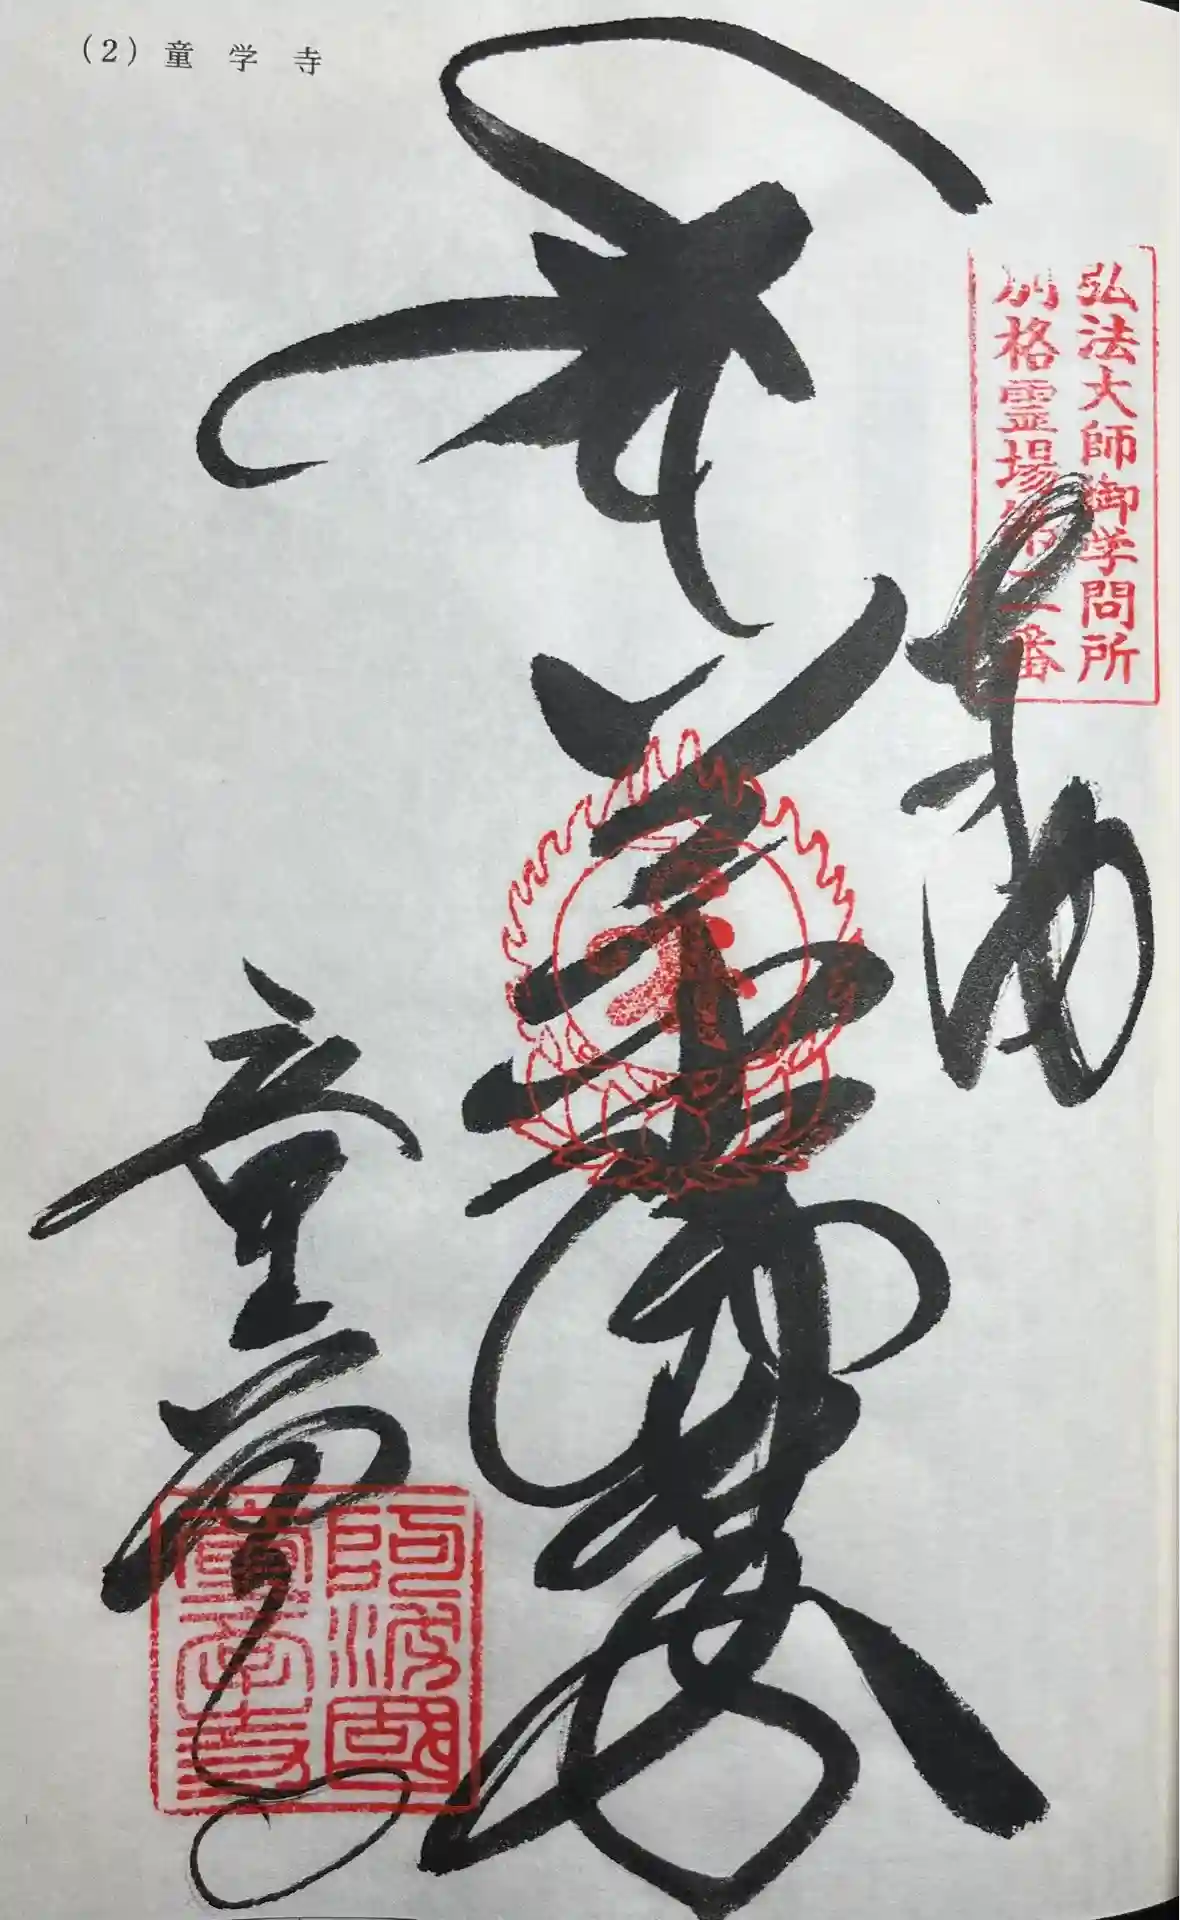 (2) 童学寺
弘法大師御学問所
別格霊場第二番
奉納
薬師
童学寺
阿波國
童学寺